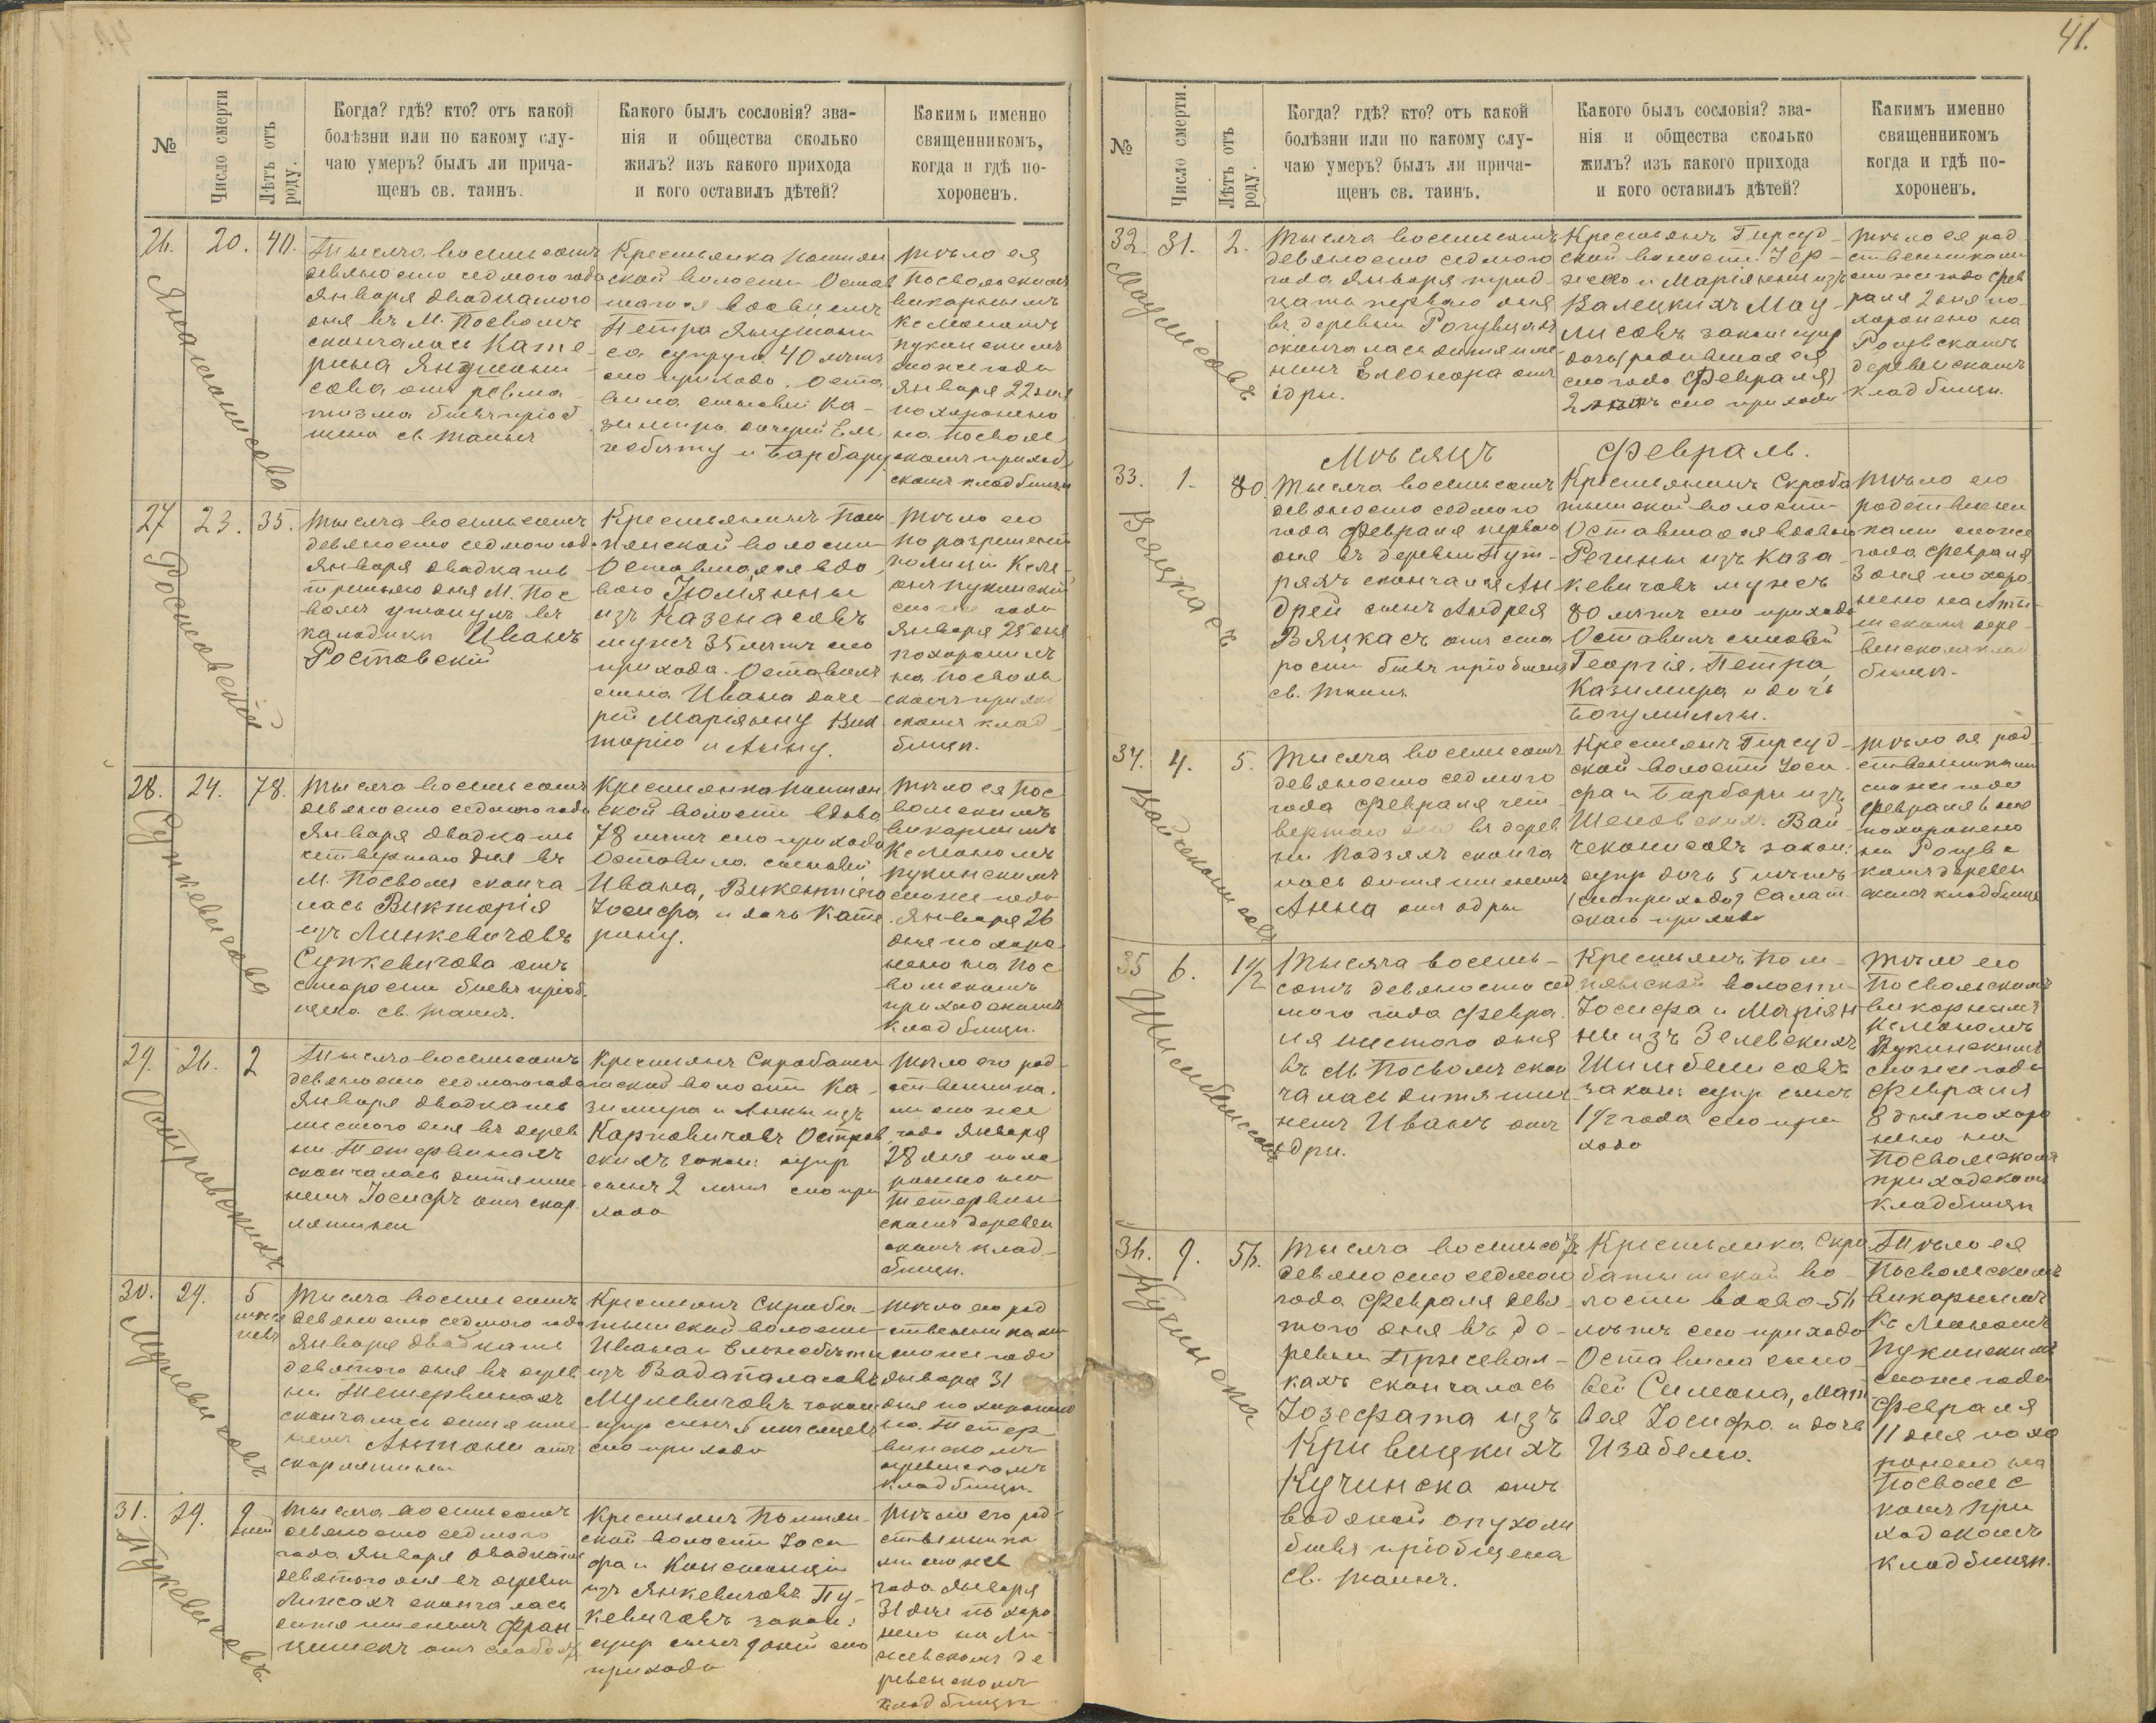 41.
№
Число смерти
Лѣтъ отъ роду.
Когда? гдѣ? кто? отъ какой
болѣзни или по какому слу-
чаю умеръ? былъ ли прича-
щенъ св. таинъ.
Какого былъ сословія? зва-
нія и общества сколько
жилъ? изъ какого прихода
и кого оставилъ дѣтей?
Какимъ именно
священникомъ,
когда и гдѣ по-
хороненъ.
26. 20. 40.
Тысяча восемьсотъ
девяносто седмого года
Января двадцатого
дня въ М. Посволъ
скончалась Кате-
рина
сова отъ ревма-
тизма бывъ пріоб
щена св. таинъ
Крестьянка
ской волости Остав
шагося вдовцемъ
Петра
са супруга 40 лѣтъ
сего прихода. Оста
вила сыновей Ка-
зимира дочерей Ел
жбѣту и Барбару
тѣло ея
Посвольскимъ
викарнымъ
Кс Маномъ
Пукинскимъ
сего же года
Января 22 дня
похоронено
на Посволь
скомъ приход
скомъ кладбищѣ
27 23. 35.
Ростовскій
Тысяча восемьсотъ
девяносто седмого года
Января двадцать
третьяго дня М. Пос
волъ утонулъ въ
колодцѣ Иванъ
Ростовскій
Крестьянинъ Пом
пянской волости
Оставшаяся вдо
вою Юліянны
изъ Казенасовъ
мужъ 35 лѣтъ сего
прихода. Оставилъ
сына Ивана доче-
рей Маріянну Вик
торію и Анну.
тѣло его
по разрешенію
полиціи Ксм
онъ Пукинскій
сего же года
Января 25 дня
похоронилъ
на Посволь
скомъ прихо
скомъ клад
бищѣ.
28. 24. 78.
Сункевичова
Тысяча восемьсотъ
девяносто седмого года
Января двадцать
четвертаго дня въ
М. Посволѣ сконча
лась Викторія
изъ Линкевичовъ
Сункевичова отъ
старости бывъ пріоб-
щена св. таинъ.
Крестьянка
ской волости вдова
78 лѣтъ сего прихода
Оставила сыновей
Ивана, Викентіего
Іосифа и дочь Кате
рину.
тѣло ея Пос
вольскимъ
викарнымъ
Кс Маномъ
Пукинскимъ
сего же года
Января 26
дня похоро
нено на Пос
вольскомъ
приходскомъ
кладбищѣ.
29. 26. 2
Островскихъ
Тысяча восемьсотъ
девяносто седмого года
Января двадцать
шестого дня въ дерев
ни Тетервинахъ
скончалась дитя име
немъ Іосифъ отъ скар
лятины
Крестьянъ Скроботын
ской волости Ка
зимира и Анны изъ
Карповичовъ Остров
скихъ закон: супр
сынъ 2 лѣтъ сего при
хода
тѣло его род-
ственника
ми сего же
года Января
28 дня похо
ронено на
Тетервин
скомъ деревен
скомъ клад-
бищѣ.
30. 29. 5 мѣсяцевъ
Мулевичовъ
Тысяча восемьсотъ
девяносто седмого года
Января двадцать
девятого дня въ дерев
ни Тетервинахъ
скончалась дитя име
немъ Антони отъ
скарлятины
Крестьянъ Скробо
тынской волости
Ивана и Ельжебѣты
изъ Вадапаласовъ
Мулевичовъ закон
супр сынъ 5 мѣсяцевъ
сего прихода
тѣло его род
ственниками
сего же года
Января 31
дня похоронено
на Тетер
винскомъ
деревенскомъ
кладбищѣ.
31. 29. 9 дней
Пукевичовъ
Тысяча восемьсотъ
девяносто седмого
года Января двадцать
девятого дня въ деревни
скончалась
дитя именемъ Фран
цишекъ отъ слабо
Крестьянъ
ской волости Іоси
фа и Констанціи
изъ Янкевичовъ Пу-
кевичовъ закон:
супр сынъ 9 дней сего
прихода
тѣло его род
ственника
ми сего же
года Января
31 дня похоро
нено на
скомъ де
ревенскомъ
кладбищѣ
№
Число смерти.
Лѣтъ отъ роду.
Когда? гдѣ? кто? отъ какой
болѣзни или по какому слу-
чаю умеръ? былъ ли прича-
щенъ св. таинъ.
Какого былъ сословія? зва-
нія и общества сколько
жилъ? изъ какого прихода
и кого оставилъ дѣтей?
Какимъ именно
священникомъ
когда и гдѣ по-
хороненъ.
32. 31. 2.
Маулисовъ
Тысяча восемьсотъ
девяносто седмого
года Января трид
цать перваго дня
въ деревни Рагувцахъ
скончалась дитя име
немъ Елеонора отъ
одры.
Крестьянъ Гирсуд
ской волости
и Маріянны изъ
Валецкихъ Мау
лисовъ закон супр
дочь (родившаяся
сего года Февраля)
2 лѣтъ сего прихода
тѣло ея род
ственниками
сего же года Фев
раля 2 дня по
хоронено на
деревенскомъ
кладбищѣ.
Мѣсяцъ Февраль.
33. 1. 80.
Вяцкасъ
Тысяча восемьсотъ
девяносто седмого
года Февраля перваго
дня въ деревни Пут-
ряхъ скончался Ан
дрей сынъ Андрея
Вяцкасъ отъ ста
рости бывъ пріобщенъ
св. таинъ
Крестьянинъ Скробо
тынской волости
Оставшаяся вдовою
Регины изъ Каза
кевичовъ мужъ
80 лѣтъ сего прихода
Оставилъ сыновей
Георгія, Петра,
Казимира и дочь
Богумилы.
тѣло его
родственни
ками сего же
года Февраля
3 дня похоро
нено на
скомъ дере-
венскомъ клад
бищѣ.
34. 4. 5.
Тысяча восемьсотъ
девяносто седмого
года Февраля чет
вертаго дня въ дерев
ни Подзяхъ сконча
лась дитя именемъ
Анна отъ одры
Крестьянъ Гирсуд-
ской волости Іоси
фа и Барбары изъ
Шеновскихъ Вай
чеконисовъ закон:
супр дочь 5 лѣтъ
скаго прихода
тѣло ея род
ственниками
сего же года
Февраля 6 дня
похоронено
на
комъ деревен
скомъ кладбищѣ
35 6. 1½
Тысяча восемь-
сотъ девяносто сед
мого года Февра
ля шестого дня
въ М Посволѣ скон
чалась дитя име
немъ Иванъ отъ
одры.
Крестьянъ Пом-
пянской волости
Іосифа и Маріян
ны изъ Зелевскихъ
Шимбелисовъ
закон: супр сынъ
1½ года сего при
хода
тѣло его
Посвольскимъ
викарнымъ
Кс Маномъ
Пукинскимъ
сего же года
Февраля
8 дня похоро
нено на
Посвольскомъ
приходскомъ
кладбищѣ
36. 9. 56.
Кучинска
Тысяча восемьсотъ
девяносто седмого
года Февраля девя
того дня въ де-
ревни Пржевал-
кахъ скончалась
Іозефата изъ
Кривицкихъ
Кучинска отъ
водяной опухоли
бывъ пріобщена
св. таинъ.
Крестьянка Скро
ботышской во-
лости вдова 56
лѣтъ сего прихода
Оставила сыно
вей Симона, Мат
вея Іосифа и дочь
Изабелю.
Тѣло ея
Посвольскимъ
викарнымъ
Кс Маномъ
Пукинскимъ
сего же года
Февраля
11 дня похо
ронено на
Посволь с
комъ при
ходскомъ
кладбищѣ.